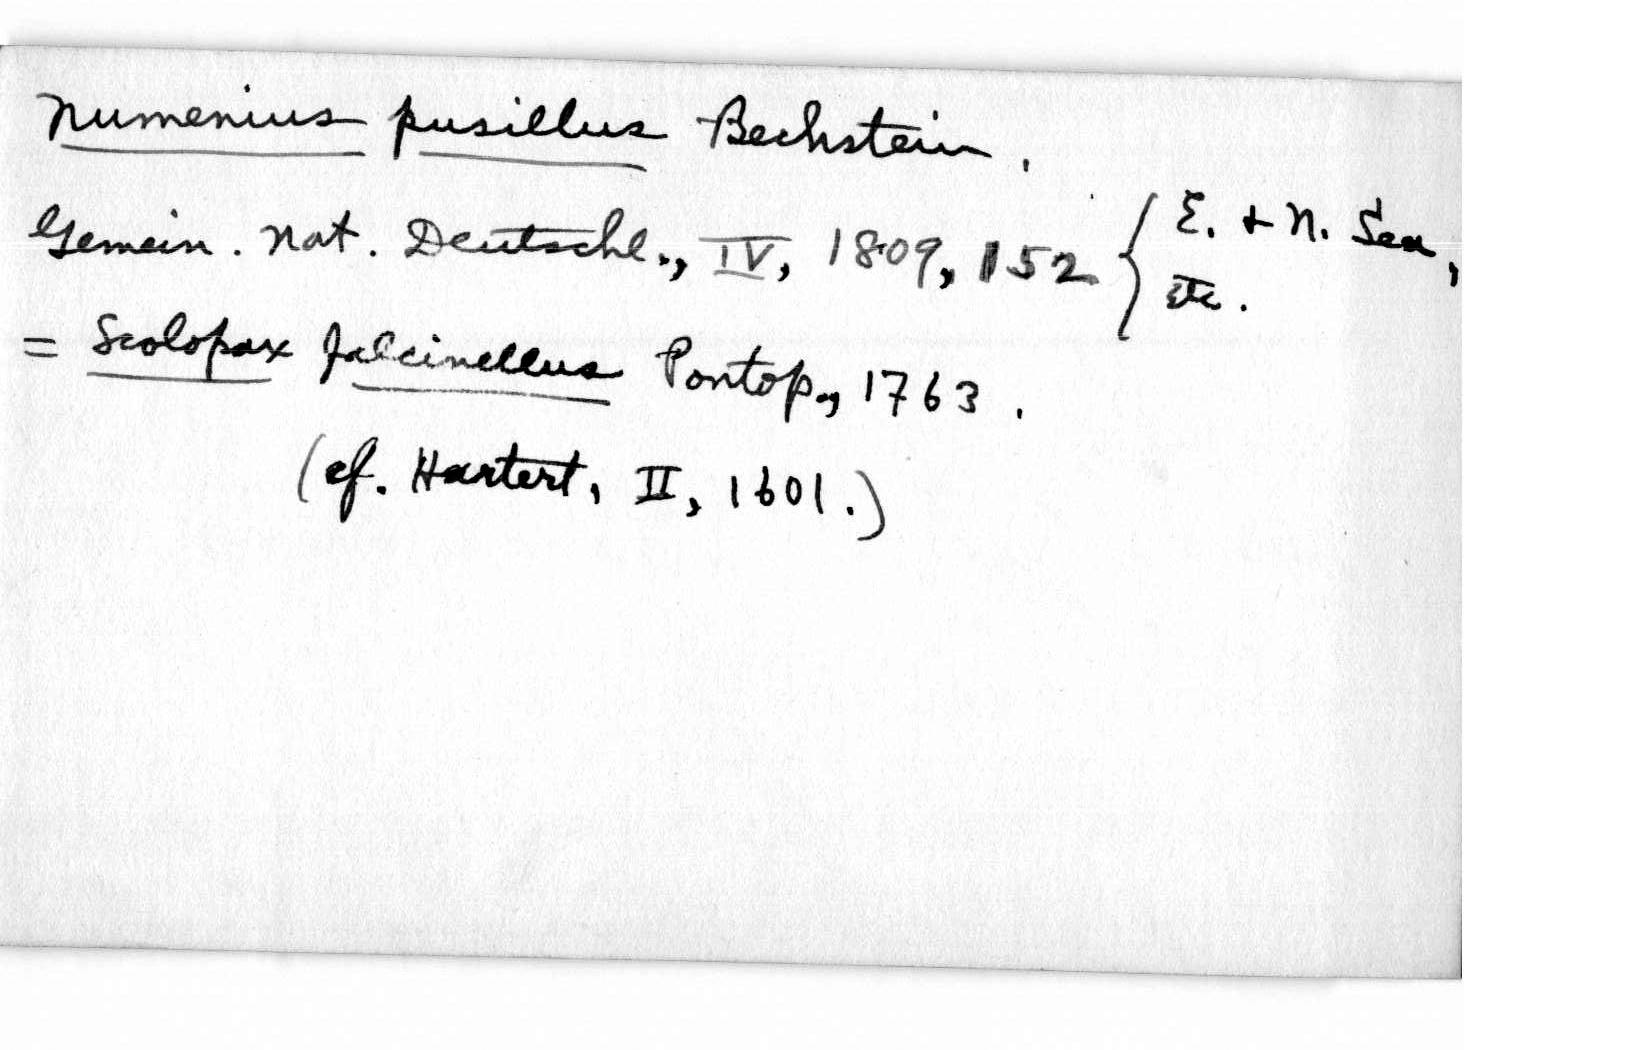 Numenius pusillus Bechstein.
Gemein. Nat. Deutschl., IV, 1809, 152 { E. + N. Sea,
etc.
= Scolopax falcinellus Pontop., 1763.
(cf. Hartert, II, 1601.)